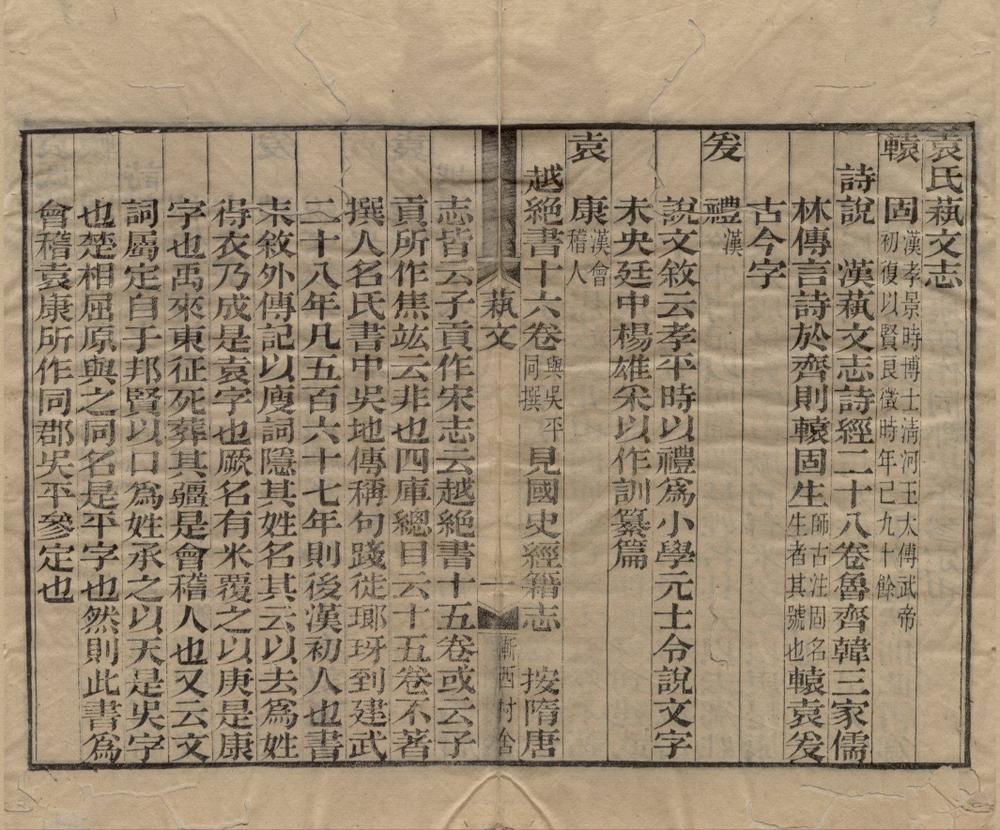 袁氏蓺文志
轅固漢孝景時博士淸河王太傅武帝初復以賢良徵時年已九十餘
詩說　漢蓺文志詩經二十八卷魯齊韓三家儒
林傳言詩於齊則轅固生師古注固名生者其號也轅袁爰
古今字
爰禮漢
說文敘云孝平時以禮爲小學元士令說文字
未央廷中楊雄采以作訓纂篇
袁康漢會稽人
越絕書十六卷與吳平同撰　見國史經籍志　按隋唐
蓺文
一
漸西村舍
志皆云子貢作宋志云越絕書十五卷或云子
貢所作焦竑云非也四庫總目云十五卷不著
撰人名氏書中吳地傳稱句踐徙瑯玡到建武
二十八年凡五百六十七年則後漢初人也書
末敘外傳記以廋詞隱其姓名其云以去爲姓
得衣乃成是袁字也厥名有米覆之以庚是康
字也禹來東征死葬其疆是會稽人也又云文
詞屬定自于邦賢以口爲姓承之以天是吳字
也楚相屈原與之同名是平字也然則此書爲
會稽袁康所作同郡吳平參定也